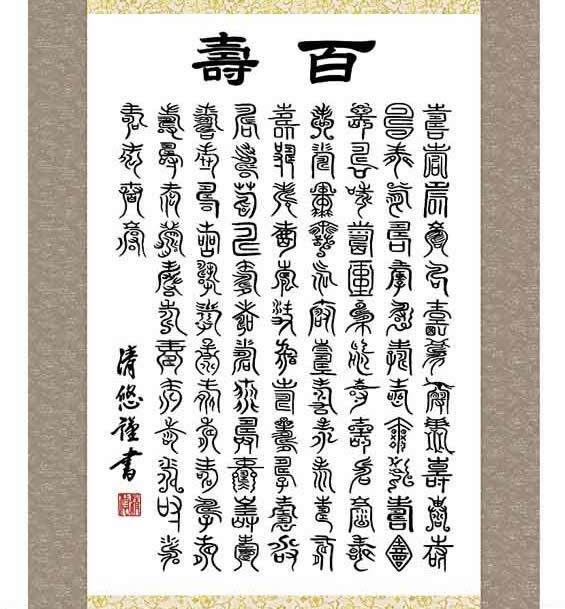 百壽
壽壽壽壽壽壽壽壽壽壽壽壽
壽壽壽壽壽壽壽壽壽壽壽壽
壽壽壽壽壽壽壽壽壽壽壽壽
壽壽壽壽壽壽壽壽壽壽壽壽
壽壽壽壽壽壽壽壽壽壽壽壽
壽壽壽壽壽壽壽壽壽壽壽壽
壽壽壽壽壽壽壽壽壽壽壽壽
壽壽壽壽壽壽壽壽壽壽壽壽
壽壽壽壽
清悠謹書